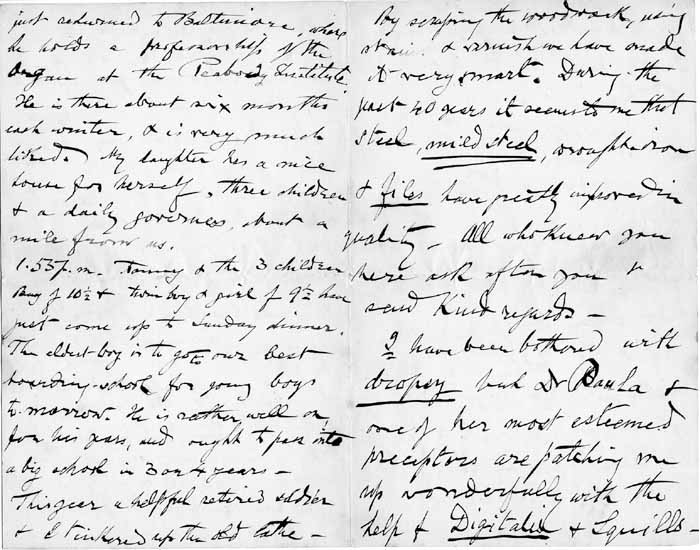 just returned to Baltimore, where
he holds a professorship of the
Organ at the Peabody Institute.
He is there about six months
each winter, & is very much
liked. My daughter has a nice
house for herself, three children
& a daily governess, about a
mile from us.
1.53 p.m. & the 3 children
boy of 10½ & twin boy & girl of 9½ have
just come up to Sunday dinner.
The eldest boy is to go to our best
boarding-school for young boys
to-morrow. He is rather well on,
for his years, and ought to pass into
a big school in 3 or 4 years –
This year a helpful retired soldier
& I tinkered up the old lathe –
By scraping the woodwork, using
stain & varnish we have made
it very smart. During the
past 40 years it seems to me that
steel, mild steel, wrought iron
& files have greatly improved in
quality – All who knew you
here ask after you &
send kind regards –
I have been bothered with
dropsy but Dr Paula &
one of her most esteemed
preceptors are patching me
up wonderfully with the
help of Digitalis & Squills –